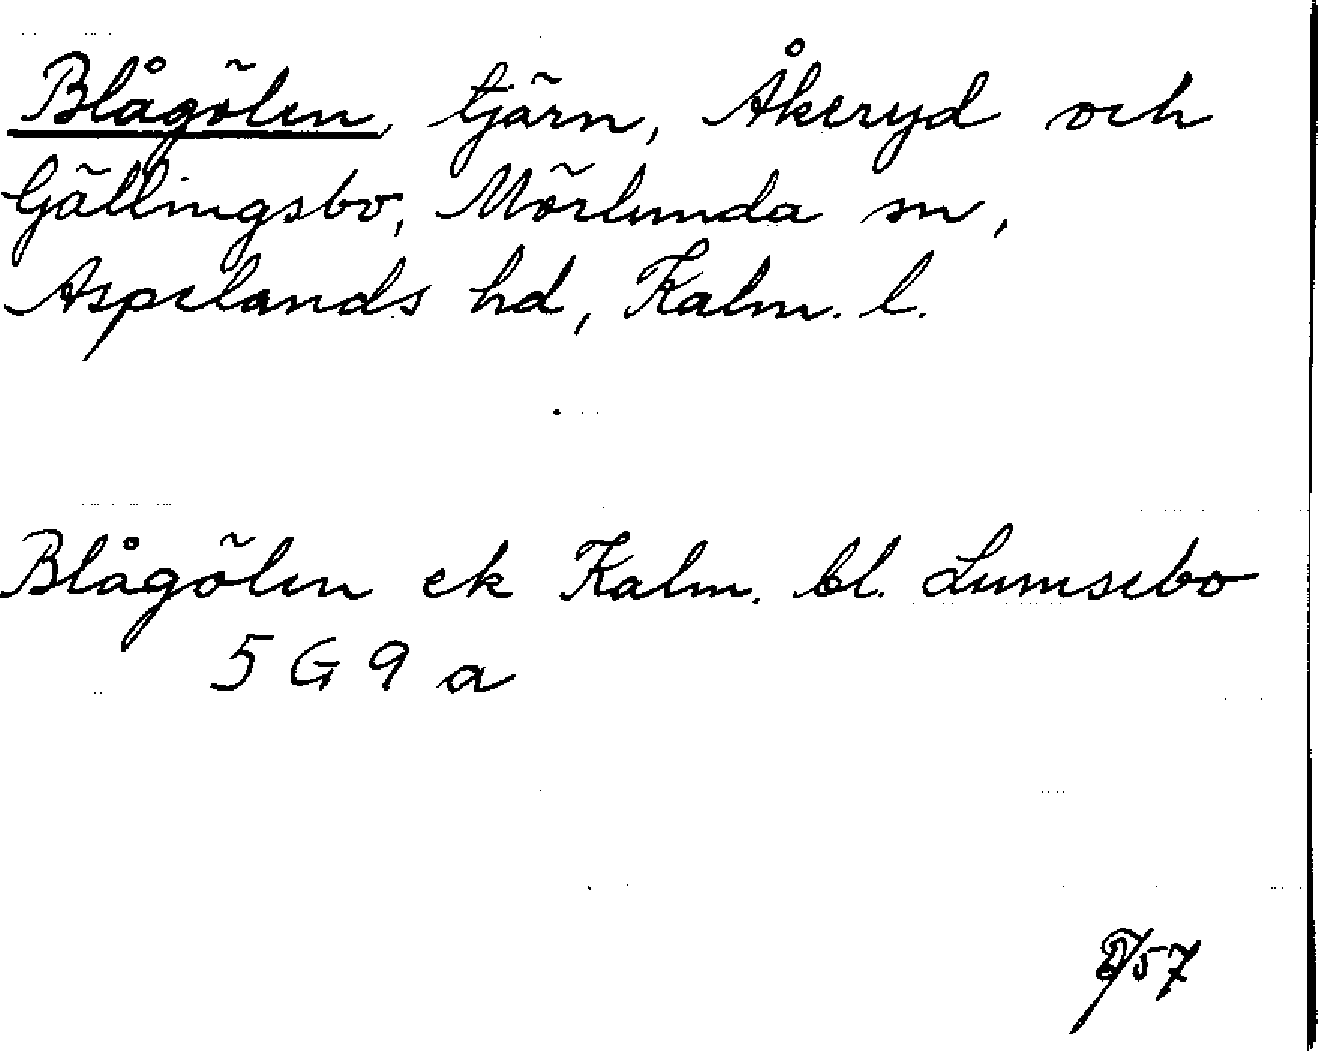 Blågölen, tjärn, Åkeryd och
Gällingsbo, Mörlunda sn,
Aspelands hd, Kalm. l.
Blågölen ek Kalm. bl. Lumsebo
5 G 9 a
57